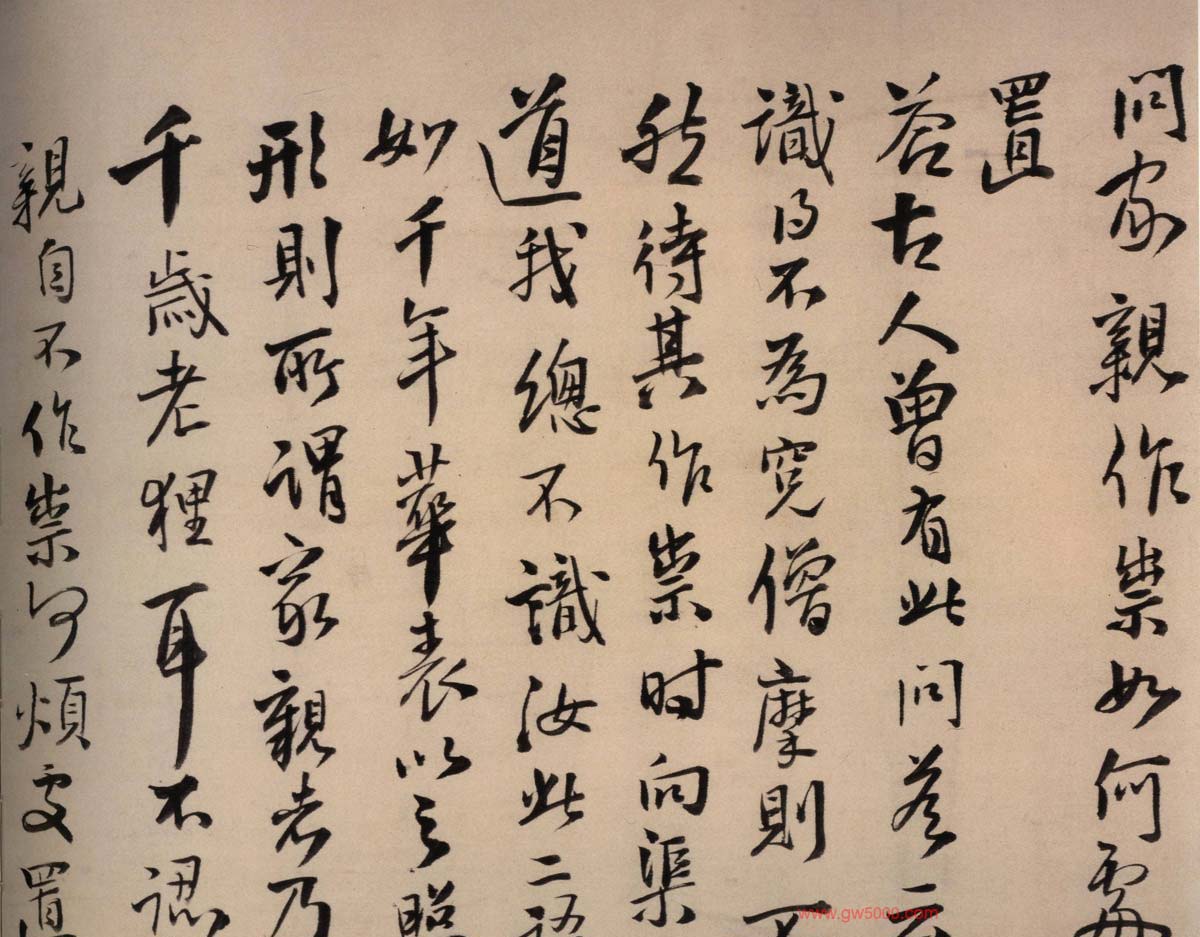 問家親作祟如何處
置
答古人曾有此問答云
識得不為冤僧摩則不
然待其作祟时向渠
道我總不識汝此二語
如千年華表以之照
形則所谓家親者乃
千歲老狸耳不認
親自不作祟何煩处置
www.gw5000.com